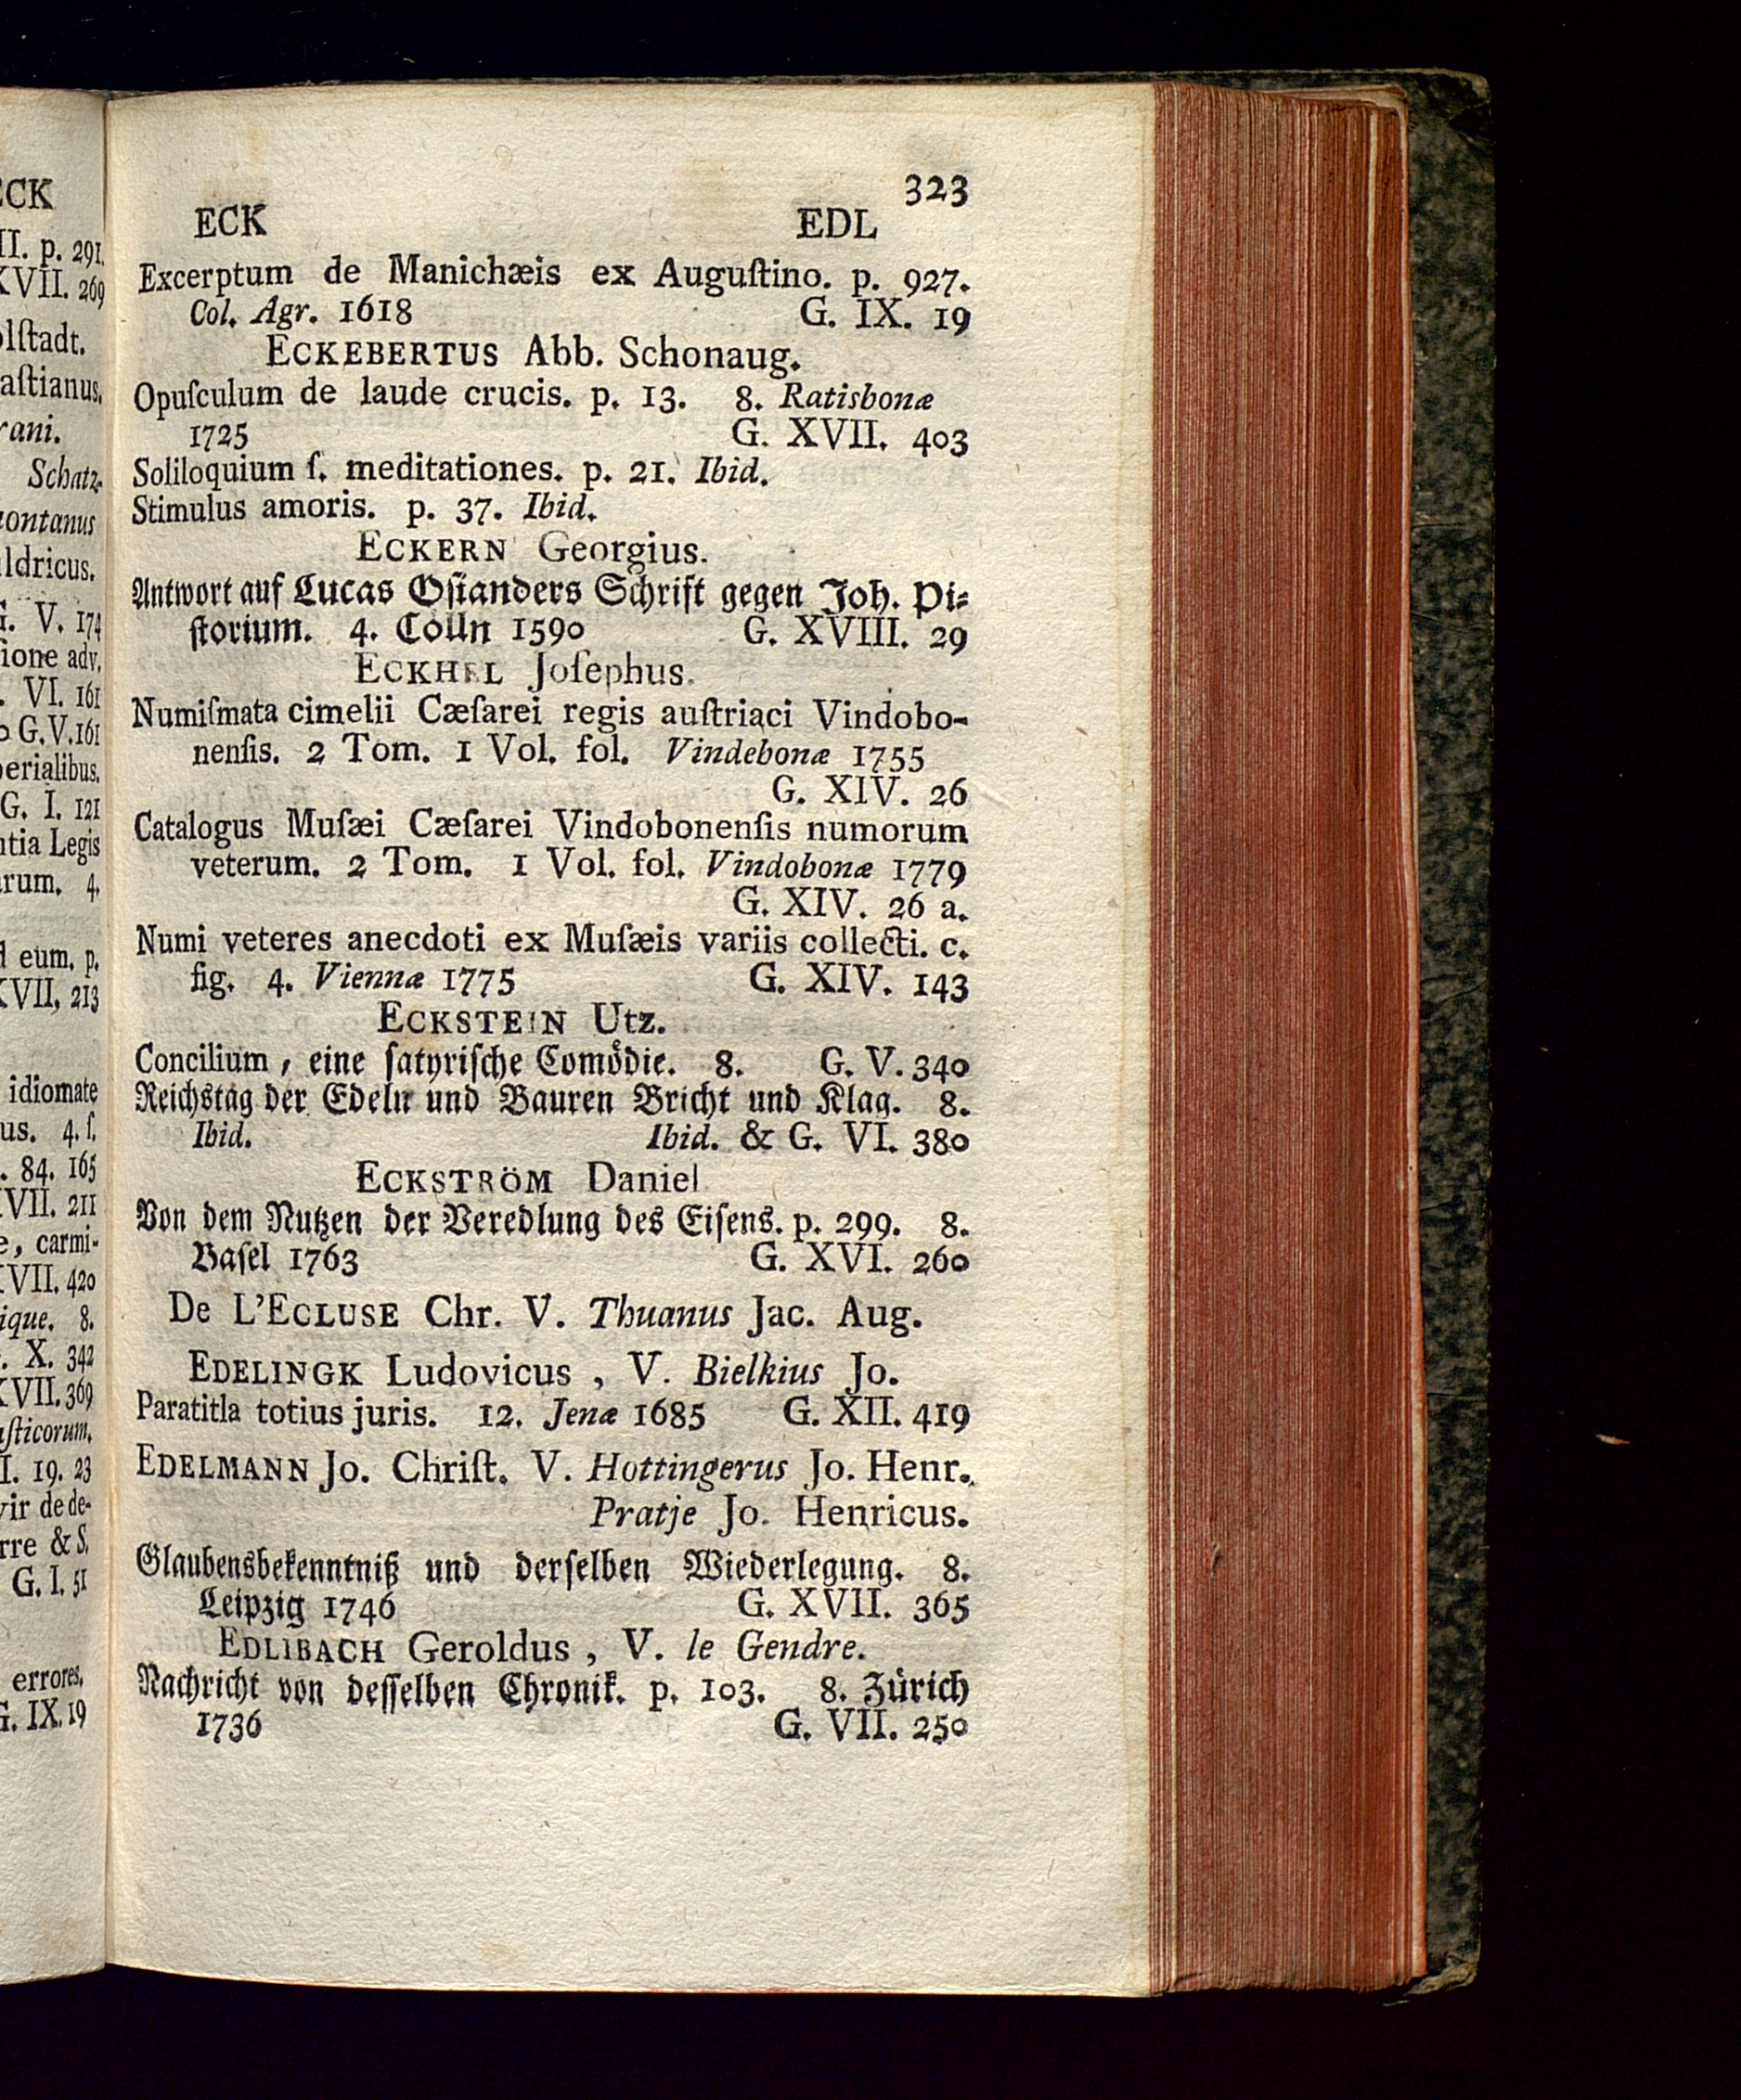 ECK
II. p. 291.
XVII. 269
olſtadt.
aſtianus.
rani.
Schatz-
montanus
ldricus.
G. V. 174
ſione adv.
. VI. 161
G. V. 161
perialibus.
G. I. 121
ntia Legis
rum. 4.
d eum. p.
XVII. 213
idiomate
us. 4. ſ.
. 84. 165
XVII. 211
e, carmi-
XVII. 420
ique. 8.
. X. 342
XVII. 369
uſticorum.
I. 19. 23
vir de de-
rre & S.
G. I. 51
errores.
G. IX. 19
323
ECK EDL
Excerptum de Manichæis ex Auguſtino. p. 927.
Col. Agr. 1618 G. IX. 19
ECKEBERTUS Abb. Schonaug.
Opuſculum de laude crucis. p. 13. 8. Ratisbonæ
1725 G. XVII. 403
Soliloquium ſ. meditationes. p. 21. Ibid.
Stimulus amoris. p. 37. Ibid.
ECKERN Georgius.
Antwort auf Lucas Oſianders Schrift gegen Joh. Pi-
ſtorium. 4. Cölln 1590 G. XVIII. 29
ECKHEL Joſephus.
Numiſmata cimelii Cæſarei regis auſtriaci Vindobo-
nenſis. 2 Tom. 1 Vol. fol. Vindebonæ 1755
G. XIV. 26
Catalogus Muſæi Cæſarei Vindobonenſis numorum
veterum. 2 Tom. 1 Vol. fol. Vindobonæ 1779
G. XIV. 26 a.
Numi veteres anecdoti ex Muſæis variis collecti. c.
fig. 4. Viennæ 1775 G. XIV. 143
ECKSTEIN Utz.
Concilium, eine ſatyriſche Comödie. 8. G. V. 340
Reichstag der Edeln und Bauren Bricht und Klag. 8.
Ibid. Ibid. & G. VI. 380
ECKSTRÖM Daniel
Von dem Nutzen der Veredlung des Eiſens. p. 299. 8.
Baſel 1763 G. XVI. 260
De L'ECLUSE Chr. V. Thuanus Jac. Aug.
EDELINGK Ludovicus, V. Bielkius Jo.
Paratitla totius juris. 12. Jenæ 1685 G. XII. 419
EDELMANN Jo. Chriſt. V. Hottingerus Jo. Henr.
Pratje Jo. Henricus.
Glaubensbekenntniß und derſelben Wiederlegung. 8.
Leipzig 1746 G. XVII. 365
EDLIBACH Geroldus, V. le Gendre.
Nachricht von deſſelben Chronik. p. 103. 8. Zürich
1736 G. VII. 250